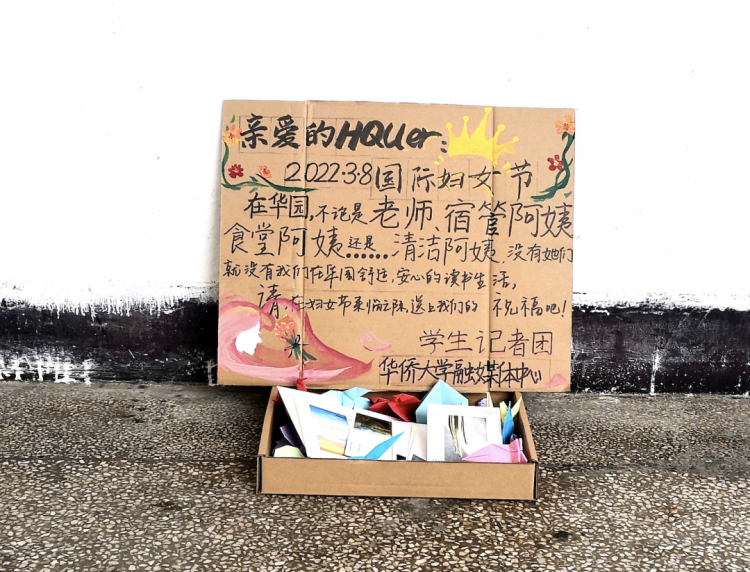 亲爱的HQUer:
2022·3·8国际妇女节
在华园,不论是老师、宿管阿姨
食堂阿姨还是……清洁阿姨 没有她们
就没有我们在华园舒适,安心的读书生活,
请,在妇女节来临之际,送上我们的 祝福吧!
学生记者团
华侨大学融媒体中心